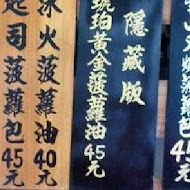 隱藏版
琥珀黃金菠蘿油45元
冰火菠蘿油40元
起司菠蘿包45元